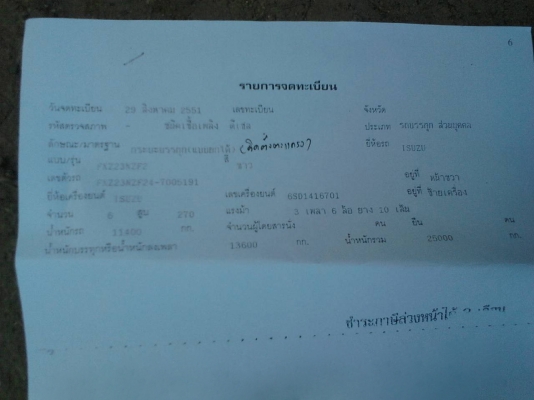 6
รายการจดทะเบียน
วันจดทะเบียน 29 สิงหาคม 2551 เลขทะเบียน จังหวัด
รหัสตรวจสภาพ - ชนิดเชื้อเพลิง ดีเซล ประเภท รถบรรทุก ส่วนบุคคล
ลักษณะ/มาตรฐาน กระบะบรรทุก (ติดตั้งตะแกรง) ยี่ห้อรถ ISUZU
แบบ/รุ่น สี ขาว
เลขตัวรถ อยู่ที่ หน้าขวา
ยี่ห้อเครื่องยนต์ ISUZU เลขเครื่องยนต์ 6SD1416701 อยู่ที่ ซ้ายเครื่อง
จำนวน 6 สูบ 270 แรงม้า 3 เพลา 6 ล้อ ยาง 10 เส้น
น้ำหนักรถ 11400 กก. จำนวนผู้โดยสารนั่ง คน ยืน คน
น้ำหนักบรรทุกหรือน้ำหนักลงเพลา 13600 กก. น้ำหนักรวม 25000 กก.
ชำระภาษีล่วงหน้าได้